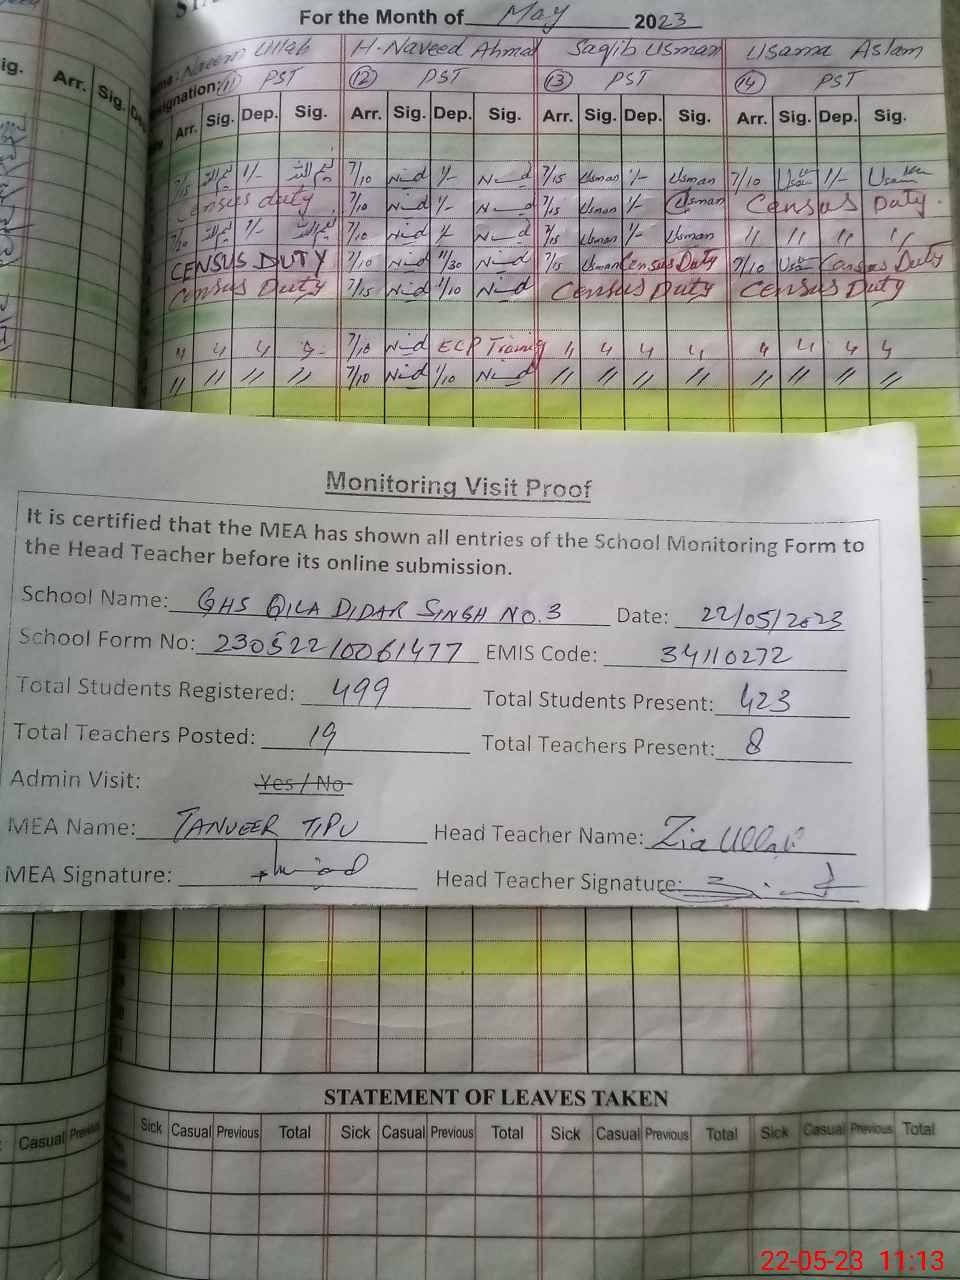 For the Month of May 2023
Naeem Ullah H. Naveed Ahmad Saqib Usman Usama Aslam
(11) PST (12) PST (13) PST (14) PST
ig. Arr. Sig. Arr. Sig. Dep. Sig. Arr. Sig. Dep. Sig. Arr. Sig. Dep. Sig. Arr. Sig. Dep. Sig.
7/15 1/- 7/10 1/- 7/15 Usman 1/- Usman 7/10 1/-
Census duty 7/10 1/- 7/15 Usman 1/- Usman Census Duty.
1/- 7/10 7/15 Usman 1/- Usman " " " "
CENSUS DUTY 7/10 11/30 7/15 Usman Census Duty 7/10 Census Duty
Census Duty 7/15 1/10 Census Duty Census Duty
" " " " 7/10 ECP Training " " " " " " " "
" " " " 7/10 1/10 " " " " " " " "
Monitoring Visit Proof
It is certified that the MEA has shown all entries of the School Monitoring Form to
the Head Teacher before its online submission.
School Name: GHS QILA DIDAR SINGH NO.3 Date: 22/05/2023
School Form No: 23052210061477 EMIS Code: 34110272
Total Students Registered: 499 Total Students Present: 423
Total Teachers Posted: 19 Total Teachers Present: 8
Admin Visit: Yes / No
MEA Name: TANVEER TIPU Head Teacher Name: Zia Ullah
MEA Signature: Head Teacher Signature:
STATEMENT OF LEAVES TAKEN
Casual Previous Sick Casual Previous Total Sick Casual Previous Total Sick Casual Previous Total Sick Casual Previous Total
22-05-23 11:13